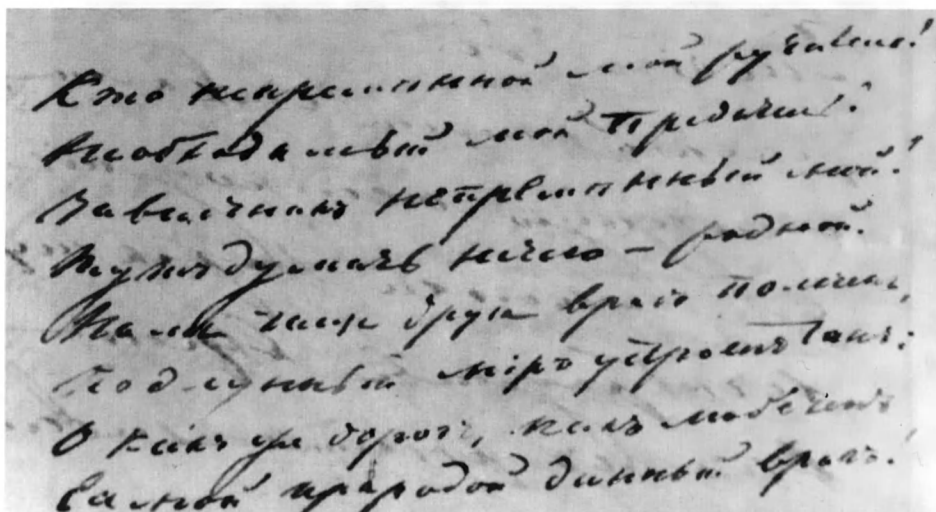 Кто непременной мой ругатель?
Необходимый мой предатель?
Завистникъ непременный мой?
Тутъ думать нечего — родной.
Намъ чаще друга врагъ полезенъ,
Подлунный мiръ устроенъ такъ:
О какъ же дорогъ, какъ любезенъ
Самой природой данный врагъ!